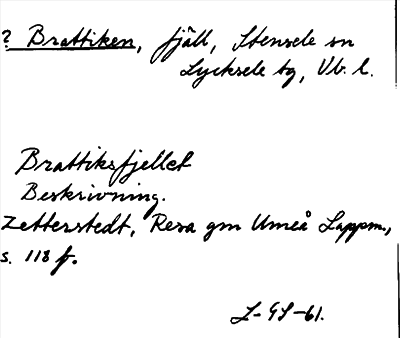 ? Brattiken, fjäll, Stensele sn
Lycksele tg, Vb. l.
Brattiksfjellet
Beskrivning.
Zetterstedt, Resa gm Umeå Lappm.,
s. 118 f.